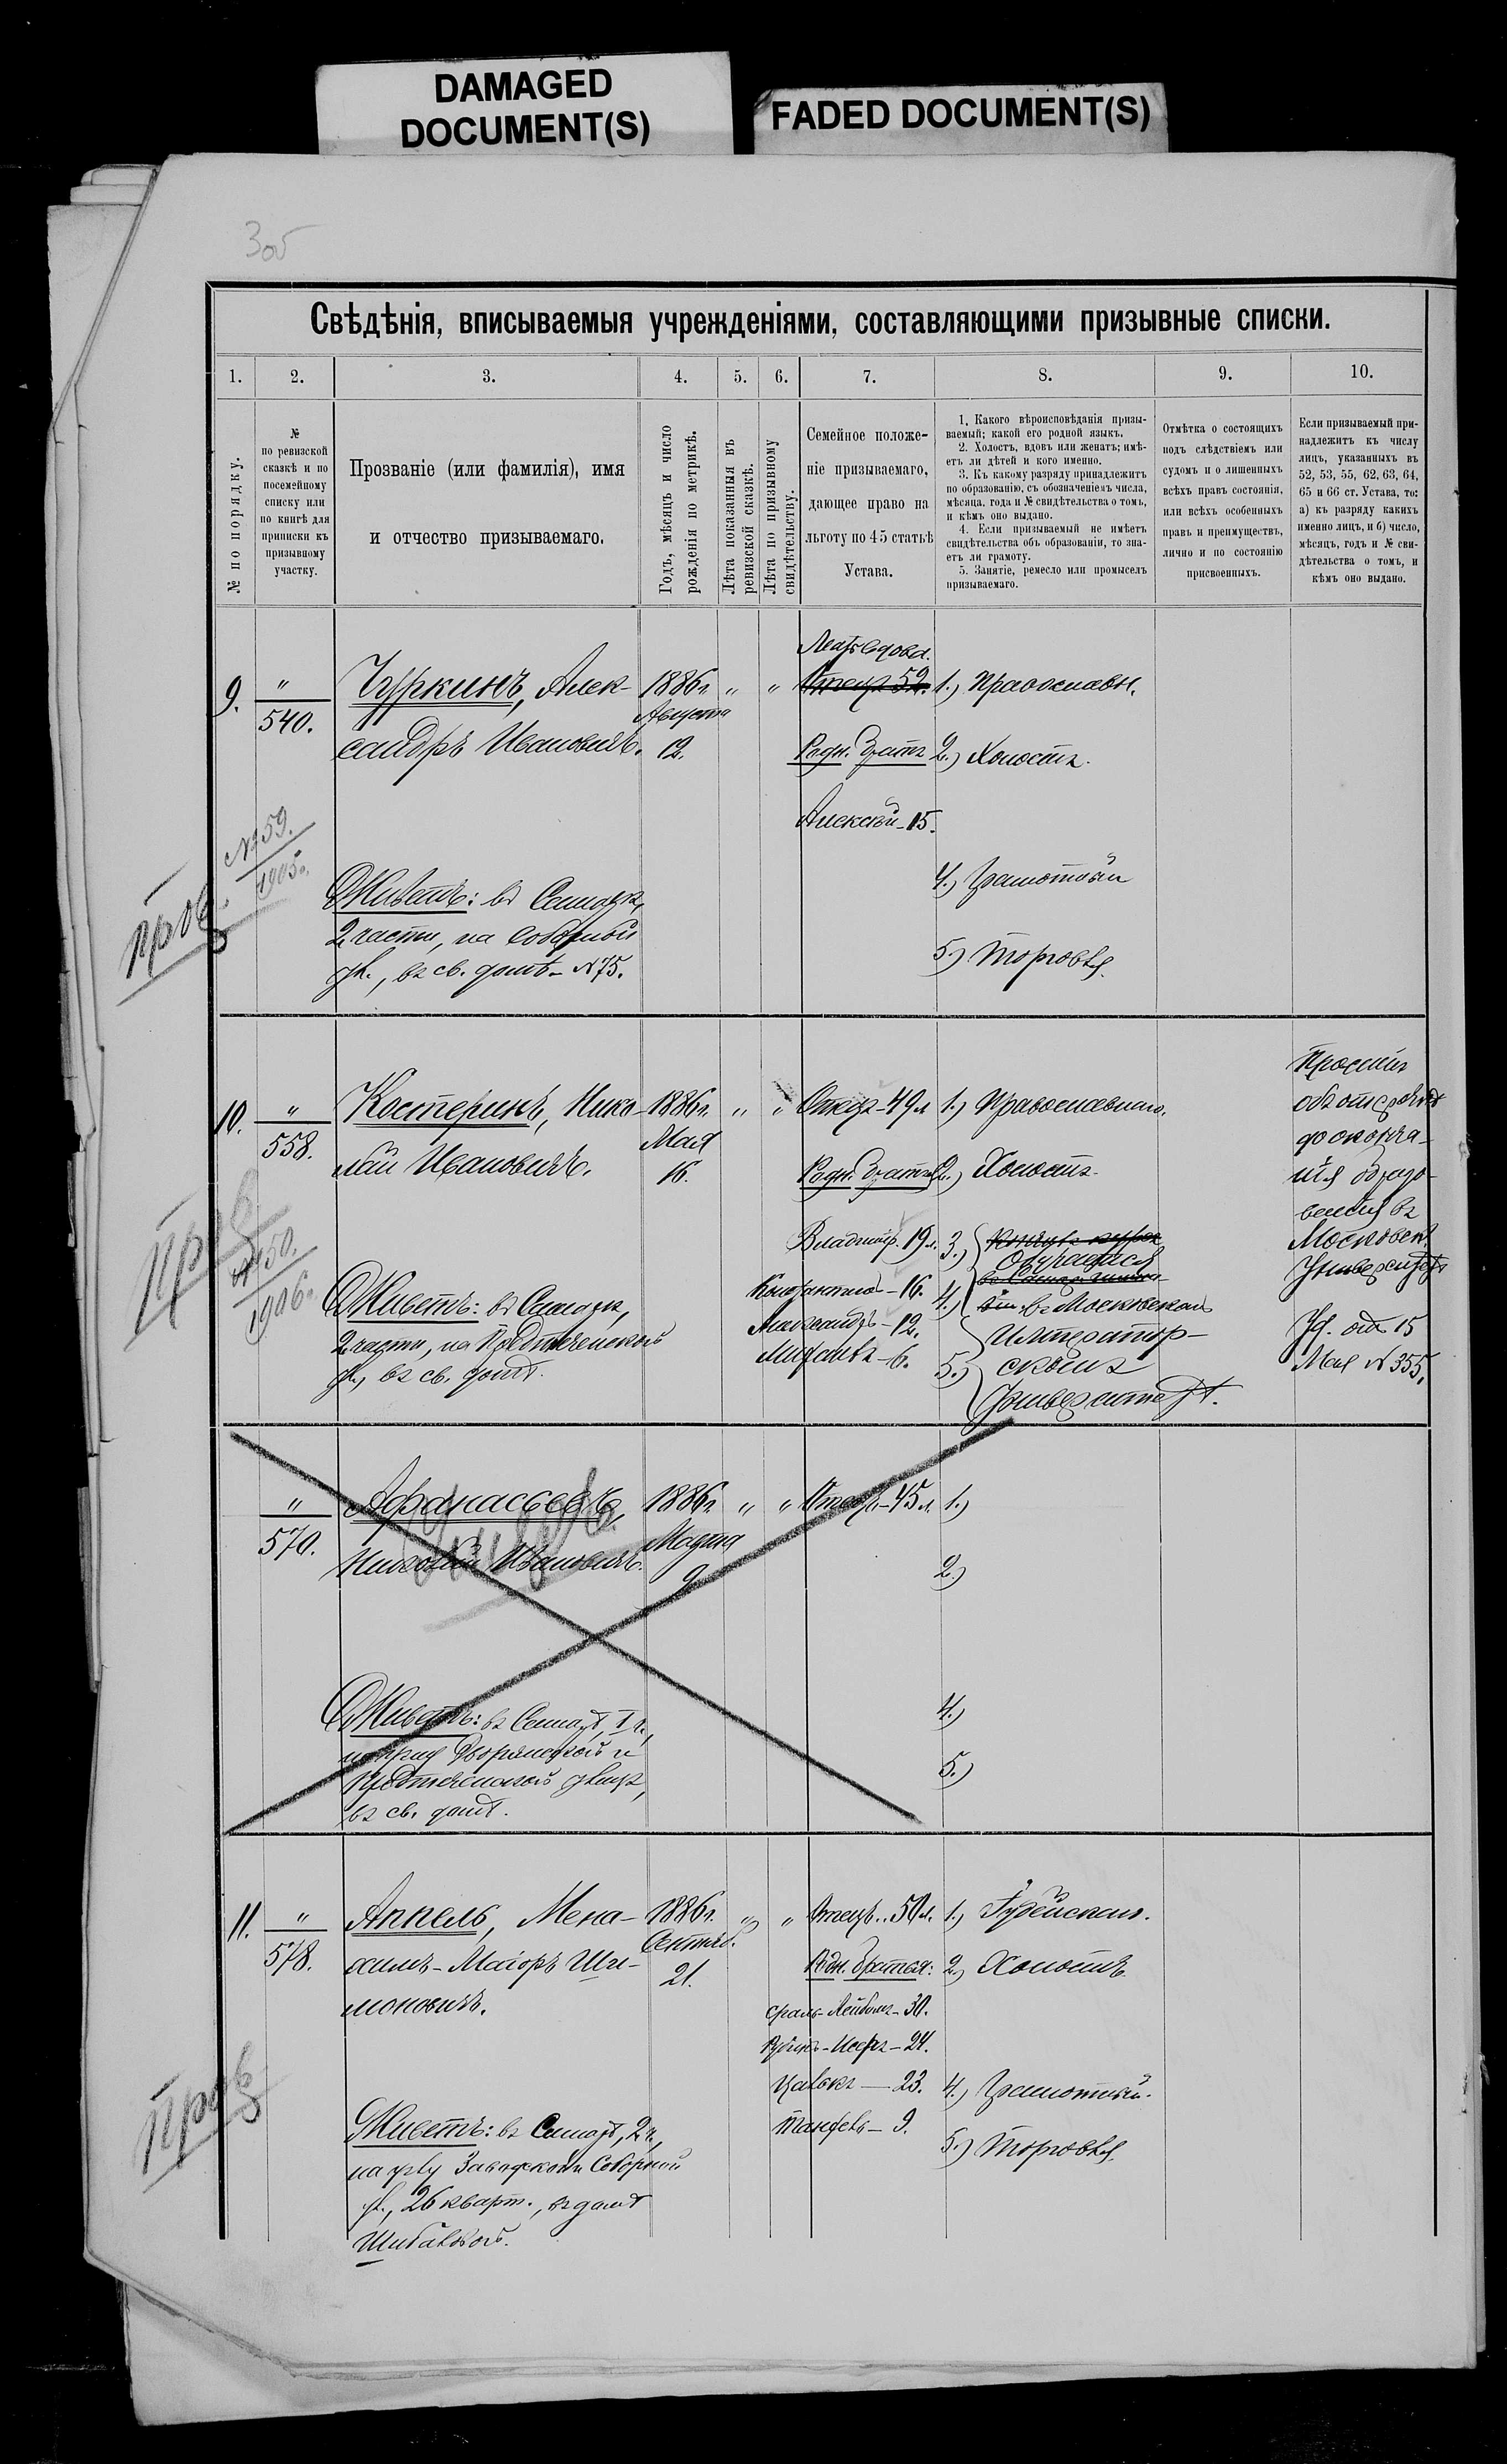 DAMAGED
DOCUMENT(S)
FADED DOCUMENT(S)
3об
Свѣдѣнія, вписываемыя учрежденіями, составляющими призывные списки.
1. 2. 3. 4. 5. 6. 7. 8. 9. 10.
№ по порядку.
№
по ревизской
сказкѣ и по
посемейному
списку или
по книгѣ для
приписки къ
призывному
участку.
Прозваніе (или фамилія), имя
и отчество призываемаго.
Годъ, мѣсяцъ и число
рожденія по метрикѣ.
Лѣта показанныя въ
ревизской сказкѣ.
Лѣта по призывному
свидѣтельству.
Семейное положе-
ніе призываемаго,
дающее право на
льготу по 45 статьѣ
Устава.
1. Какого вѣроисповѣданія призы-
ваемый; какой его родной языкъ.
2. Холостъ, вдовъ или женатъ; имѣ-
етъ ли дѣтей и кого именно.
3. Къ какому разряду принадлежитъ
по образованію, съ обозначеніемъ числа,
мѣсяца, года и № свидѣтельства о томъ,
и кѣмъ оно выдано.
4. Если призываемый не имѣетъ
свидѣтельства объ образованіи, то зна-
етъ ли грамоту.
5. Занятіе, ремесло или промыселъ
призываемаго.
Отмѣтка о состоящихъ
подъ слѣдствіемъ или
судомъ и о лишенныхъ
всѣхъ правъ состоянія,
или всѣхъ особенныхъ
правъ и преимуществъ,
лично и по состоянію
присвоенныхъ.
Если призываемый при-
надлежитъ къ числу
лицъ, указанныхъ въ
52, 53, 55, 62, 63, 64,
65 и 66 ст. Устава, то:
а) къ разряду какихъ
именно лицъ, и б) число,
мѣсяцъ, годъ и № сви-
дѣтельства о томъ, и
кѣмъ оно выдано.
9.
"
540.
Чуркинъ, Алек-
сандръ Ивановичъ.
1886 г.
Августа
12.
" "
Мать вдова.
Отецъ 52.
Родн. братъ
Алексѣй - 15.
1.) Православн.
2.) Холостъ.
4.) Грамотный
5.) Торговля.
№ 59.
1905 г.
Пров.
Живетъ: въ Самарѣ,
2 части, на Соборной
ул., въ св. домѣ - № 75.
10.
"
558.
Костеринъ, Нико-
лай Ивановичъ.
1886 г.
Мая
16.
" "
Отецъ - 49 л.
Родн. братья
Владимір. 19 л.
Константинъ - 16.
Александръ - 12.
1.) Православнаго.
2.) Холостъ
3.)
Обучается
4.)
въ Московскомъ
Император-
5.) скомъ
Университетѣ.
Проситъ
объ отсрочкѣ
до оконча-
нія образо-
ванія въ
Московск.
Университетѣ
Уд. отъ 15
Мая № 355.
Пров
№ 50.
1906 г.
Живетъ: въ Самарѣ,
2 части, на Предтеченской
ул., въ св. домѣ.
"
570.
Афанасьевъ,
Николай Ивановичъ.
1886 г.
Марта
9
" "
Отецъ - 45 л.
1.)
2.)
4.)
5.)
Живетъ: въ Самарѣ, 1 ч.,
на углу Дворянской и
Предтеченской улицъ,
въ св. домѣ.
11.
"
578.
Аппель, Мена-
химъ-Маіоръ Ши-
моновичъ.
1886 г.
Сентяб.
21.
" "
Отецъ.. 50 л.
Родн. братья:
Лейба - 30.
24.
23.
9.
1.) Іудейскаго.
2.) Холостъ
4.) Грамотный.
5.) Торговля.
Пров
Живетъ: въ Самарѣ, 2 ч.,
на углу Заводской и Соборной
ул., 26 кварт., въ домѣ